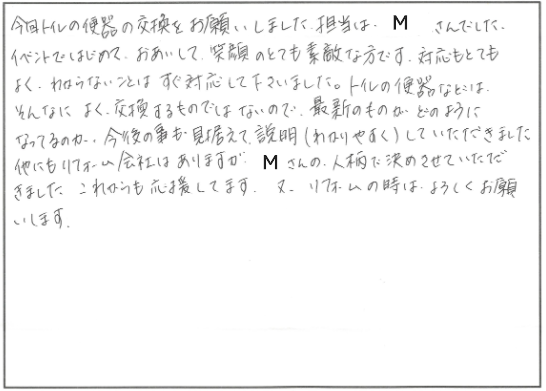 今回トイレの便器の交換をお願いしました。担当は、M さんでした。
イベントではじめて、おあいして、笑顔のとても素敵な方です。対応もとても
よく、わからないことはすぐ対応して下さいました。トイレの便器などは、
そんなによく、交換するものではないので、最新のものがどのように
なってるのか、今後の事も見据えて、説明(わかりやすく)していただきました
他にもリフォーム会社はありますが Mさんの、人柄で決めさせていただ
きました これからも応援してます。又、リフォームの時は、よろしくお願
いします。